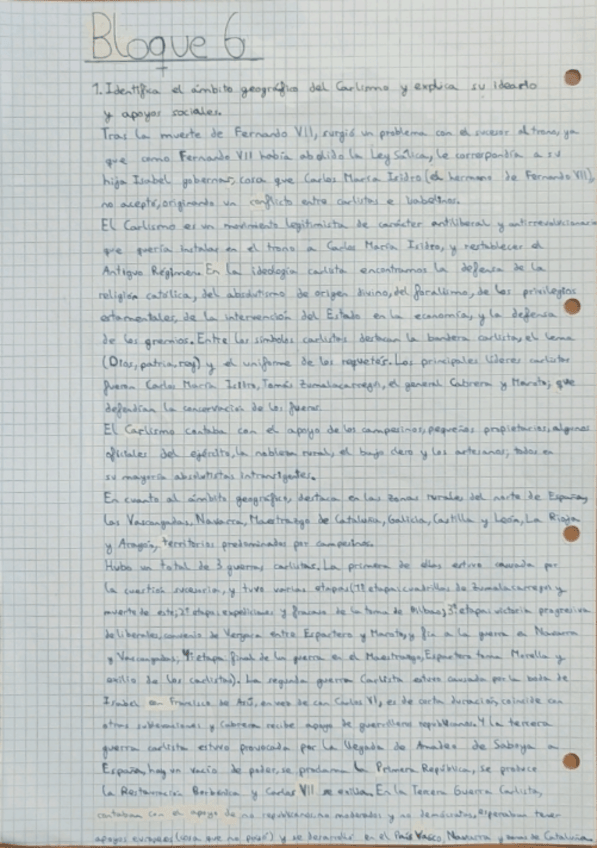 Bloque 6
1. Identifica el ámbito geográfico del Carlismo y explica su ideario
y apoyos sociales.
Tras la muerte de Fernando VII, surgió un problema con el sucesor al trono, ya
que como Fernando VII había abolido la Ley Sálica, le correspondía a su
hija Isabel gobernar, cosa que Carlos María Isidro (el hermano de Fernando VII),
no aceptó, originando un conflicto entre carlistas e isabelinos.
El Carlismo es un movimiento legitimista de carácter antiliberal y antirrevolucionario
que quería instalar en el trono a Carlos María Isidro, y restablecer el
Antiguo Régimen. En la ideología carlista encontramos la defensa de la
religión católica, del absolutismo de origen divino, del foralismo, de los privilegios
estamentales, de la intervención del Estado en la economía, y la defensa
de los gremios. Entre los símbolos carlistas destacan la bandera carlista, el lema
(Dios, patria, rey) y el uniforme de los requetés. Los principales líderes carlistas
fueron Carlos María Isidro, Tomás Zumalacarregri, el general Cabrera y Maroto, que
defendían la conservación de los fueros.
El Carlismo contaba con el apoyo de los campesinos, pequeños propietarios, algunos
oficiales del ejército, la nobleza rural, el bajo clero y los artesanos, todos en
su mayoría absolutistas intransigentes.
En cuanto al ámbito geográfico, destaca en las zonas rurales del norte de España,
las Vascongadas, Navarra, Maestrazgo de Cataluña, Galicia, Castilla y León, La Rioja
y Aragón, territorios predominados por campesinos.
Hubo un total de 3 guerras carlistas. La primera de ellas estuvo causada por
la cuestión sucesoria, y tuvo varias etapas (1ª etapa: cuadrillas de Zumalacarregri y
muerte de este; 2ª etapa: expediciones y fracaso de la toma de Bilbao; 3ª etapa: victoria progresiva
de liberales, convenio de Vergara entre Espartero y Maroto, y fin a la guerra en Navarra
y Vascongadas; 4ª etapa final de la guerra en el Maestrazgo, Espartero toma Morella y
exilio de los carlistas). La segunda guerra Carlista estuvo causada por la boda de
Isabel con Francisco de Asís, en vez de con Carlos VI, es de corta duración, coincide con
otras sublevaciones y Cabrera recibe apoyo de guerrilleros republicanos. Y la tercera
guerra carlista estuvo provocada por la llegada de Amadeo de Saboya a
España, hay un vacío de poder, se proclama la Primera República, se produce
la Restauración Borbónica y Carlos VII se exilia. En la Tercera Guerra Carlista,
contaban con el apoyo de no republicanos, no moderados y no demócratas, esperaban tener
apoyos europeos (cosa que no pasó) y se desarrolló en el País Vasco, Navarra y zonas de Cataluña.